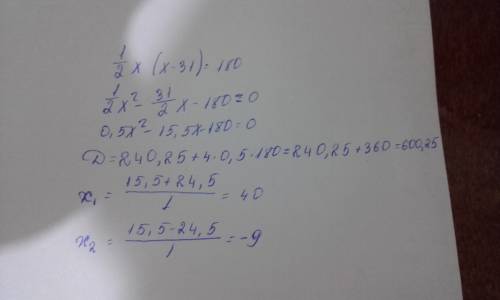 1/2 x (x-31) = 180
1/2 x² - 31/2 x - 180 = 0
0,5x² - 15,5x - 180 = 0
D = 240,25 + 4·0,5·180 = 240,25 + 360 = 600,25
x₁ = (15,5+24,5)/1 = 40
x₂ = (15,5-24,5)/1 = -9